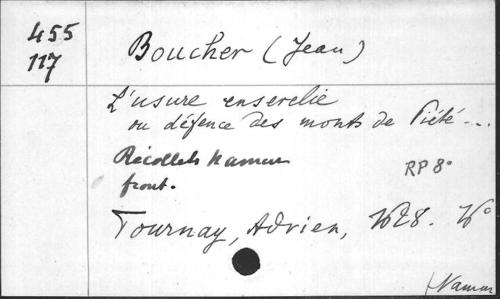 455
117
Boucher (Jean)
L'usure enserelie
ou défence des monts de Piété-...
Récollets Namur
RP 8°
front.
Tournay, Adrien, 1628. 4°
(Namur